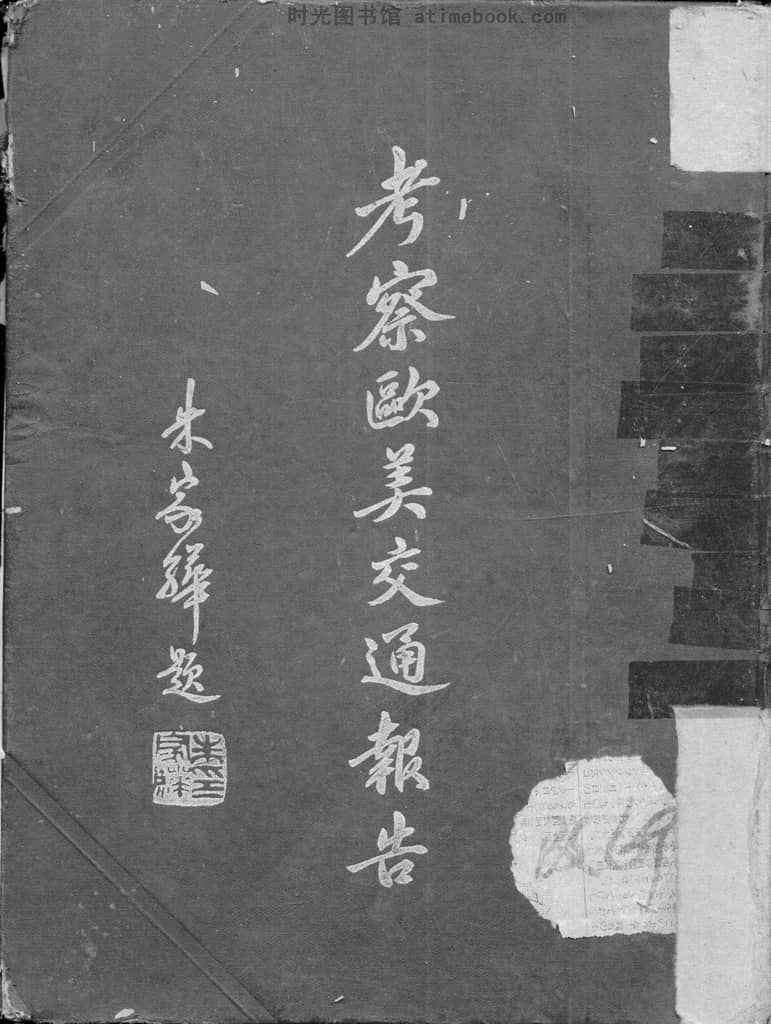 时光图书馆 atimebook.com
考察歐美交通報告
朱家驊題